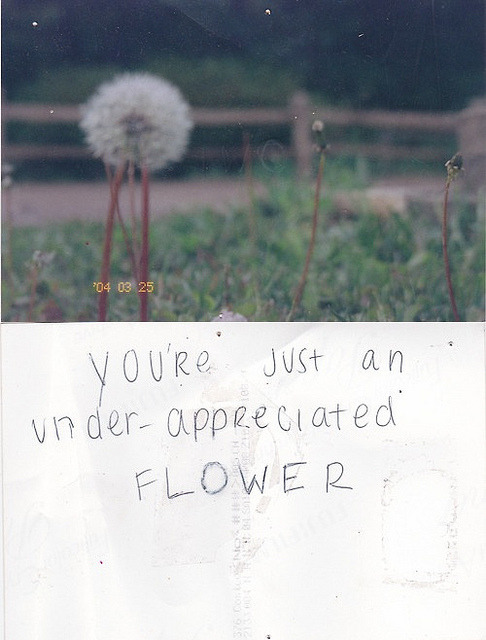 '04 03 25
YOU'Re JUST an
under-appreciated
FLOWER